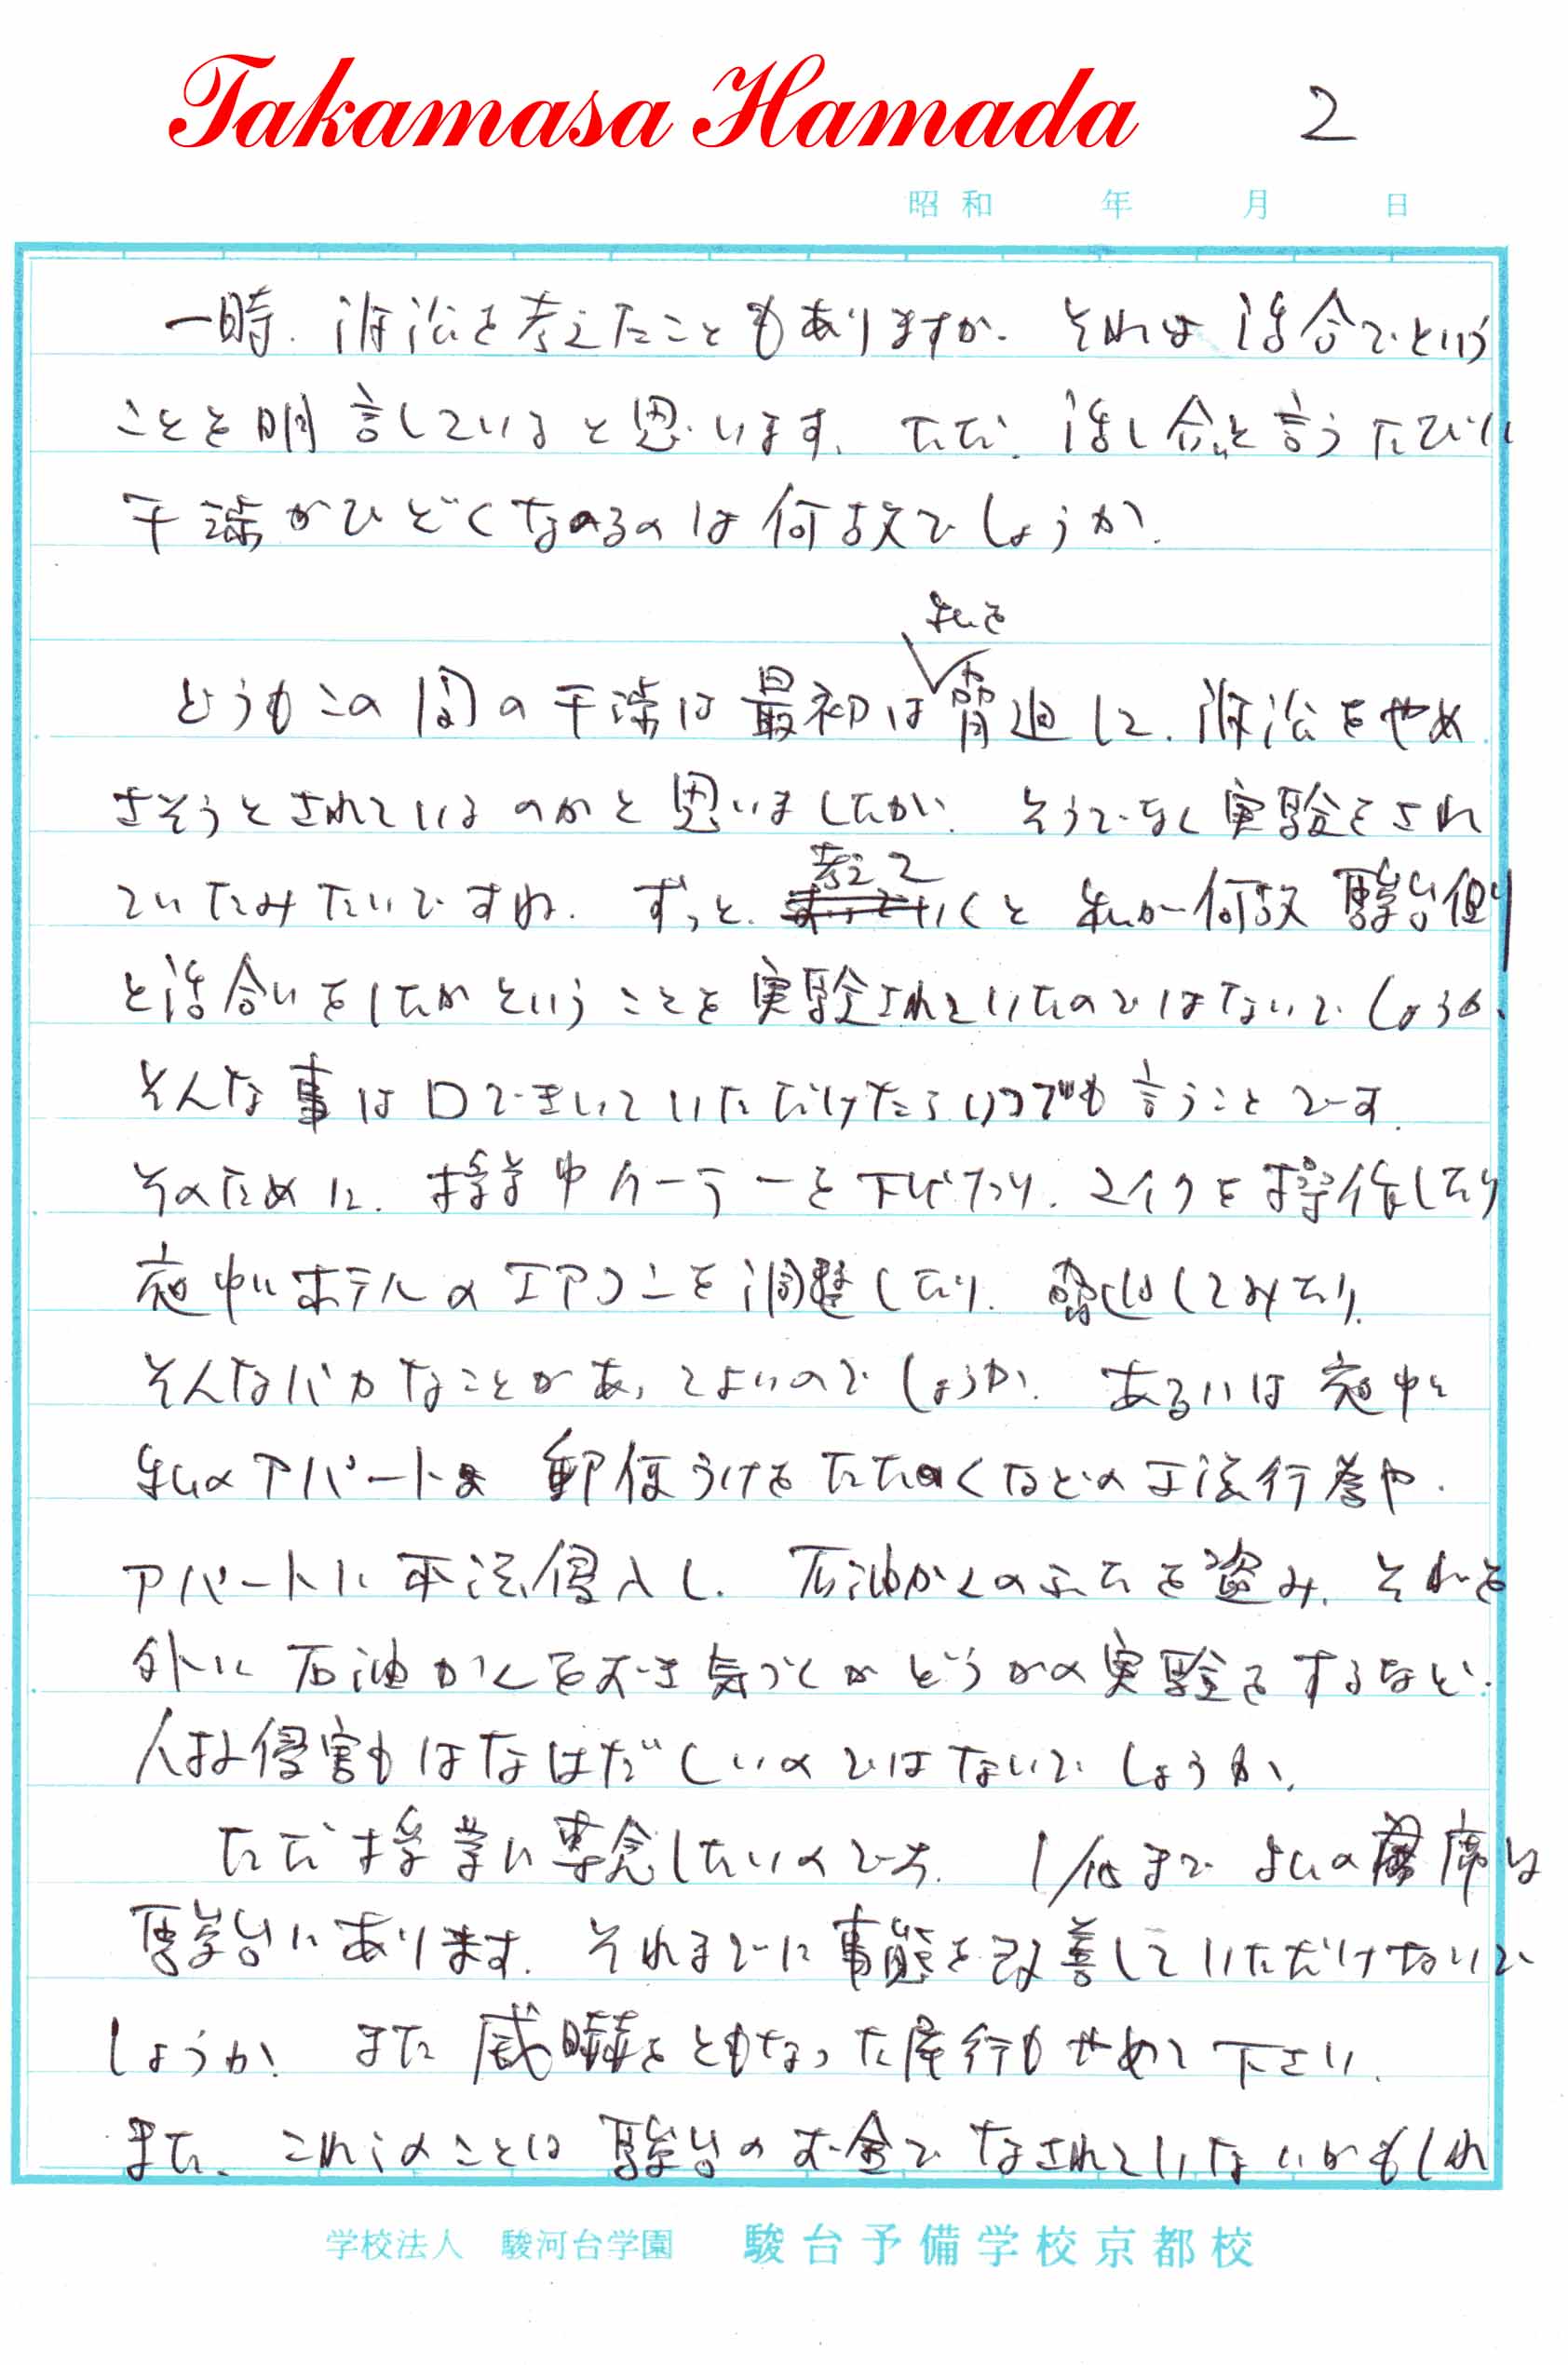 Takamasa Hamada 2
昭和 年 月 日
一時、訴訟を考えたこともありますが、それは話合でという
ことを明言していると思います。ただ、話し合いと言うたびに
干渉がひどくなるのは何故でしょうか。
私を
どうもこの間の干渉は最初は脅迫して、訴訟をやめ
させようとされているのかと思いましたが、そうでなく実験をされ
ていたみたいですね。ずっと、考えていくと私が何故駿台側
と話合いをしたかということを実験されていたのではないでしょうか。
そんな事は口できいていただけたらいつでも言うことです。
そのために、授業中クーラーを下げたり、マイクを操作したり
夜中にホテルのエアコンを調整したり、脅迫してみたり、
そんなバカなことがあってよいのでしょうか。あるいは夜中に
私のアパートの郵便うけをたたくなどの不法行為や、
アパートに不法侵入し、石油かんのふたを盗み、それを
外に石油かんをおき気づくかどうかの実験をするなど、
人権侵害もはなはだしいのではないでしょうか。
ただ授業に専念したいのです。 まで私の席は
駿台にあります。それまでに事態を改善していただけないで
しょうか。また威嚇をともなった尾行もやめて下さい。
また、これらのことは駿台のお金でなされていないかもしれ
学校法人 駿河台学園 駿台予備学校京都校